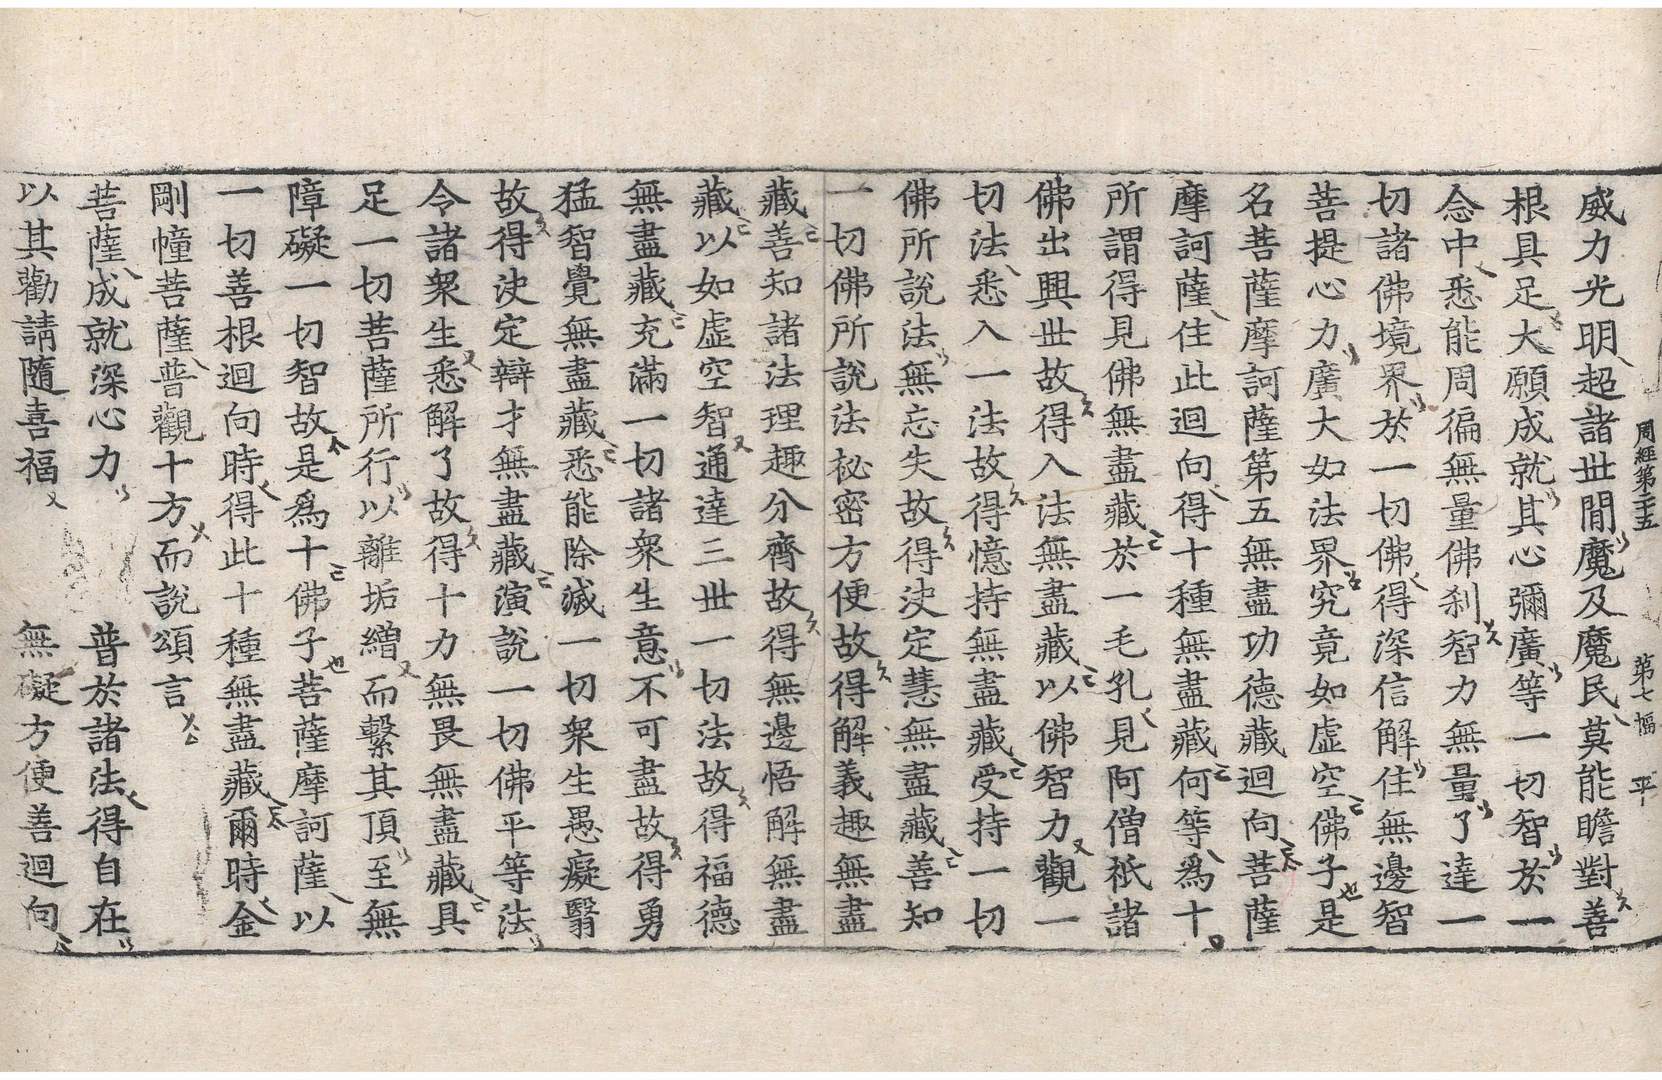 周經第二十五 第七幅 平
威力光明超諸世間魔及魔民莫能瞻對善
根具足大願成就其心彌廣等一切智於一
念中悉能周徧無量佛刹智力無量了達一
切諸佛境界於一切佛得深信解住無邊智
菩提心力廣大如法界究竟如虛空佛子是
名菩薩摩訶薩第五無盡功德藏迴向菩薩
摩訶薩住此迴向得十種無盡藏何等爲十
所謂得見佛無盡藏於一毛孔見阿僧祇諸
佛出興世故得入法無盡藏以佛智力觀一
切法悉入一法故得憶持無盡藏受持一切
佛所說法無忘失故得决定慧無盡藏善知
一切佛所說法祕密方便故得解義趣無盡
藏善知諸法理趣分齊故得無邊悟解無盡
藏以如虛空智通達三世一切法故得福德
無盡藏充滿一切諸衆生意不可盡故得勇
猛智覺無盡藏悉能除滅一切衆生愚癡翳
故得决定辯才無盡藏演說一切佛平等法
令諸衆生悉解了故得十力無畏無盡藏具
足一切菩薩所行以離垢繒而繫其頂至無
障礙一切智故是爲十佛子菩薩摩訶薩以
一切善根迴向時得此十種無盡藏爾時金
剛幢菩薩普觀十方而說頌言
菩薩成就深心力 普於諸法得自在
以其勸請隨喜福 無礙方便善迴向